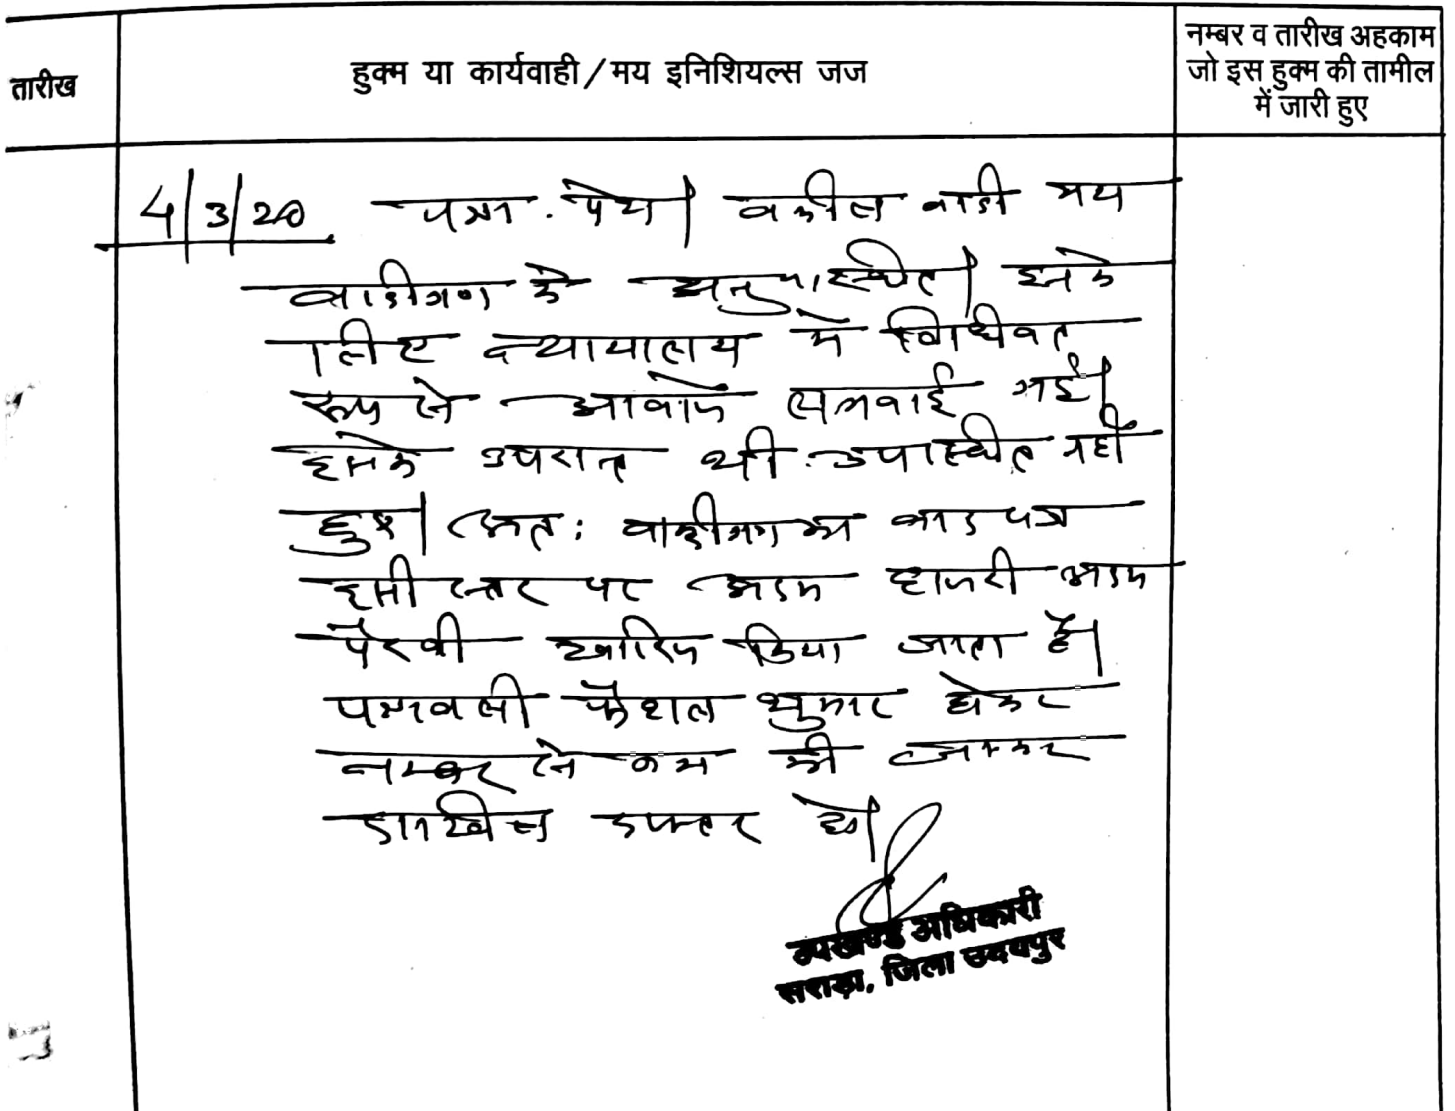 तारीख
हुक्म या कार्यवाही/मय इनिशियल्स जज
नम्बर व तारीख अहकाम
जो इस हुक्म की तामील
में जारी हुए
4/3/20 पत्रा. पेश। वकील वादी मय
वादीगण के अनुपस्थित। इनके
लिए न्यायालय में विधिवत
रूप से आवाजे लगवाई गई।
इसके उपरान्त भी उपस्थित नहीं
हुए। अतः वादीगण का वाद पत्र
इसी स्तर पर अदम हाजरी अदम
पैरवी खारिज किया जाता है।
पत्रावली फैशल शुमार होकर
नम्बर से कम की जाकर
दाखिल दफ्तर हो।
उपखण्ड अधिकारी
सराड़ा, जिला उदयपुर